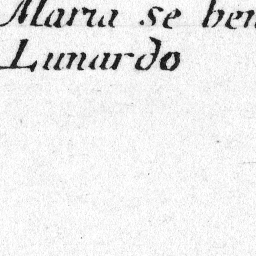 Maria se ben
Lunardo